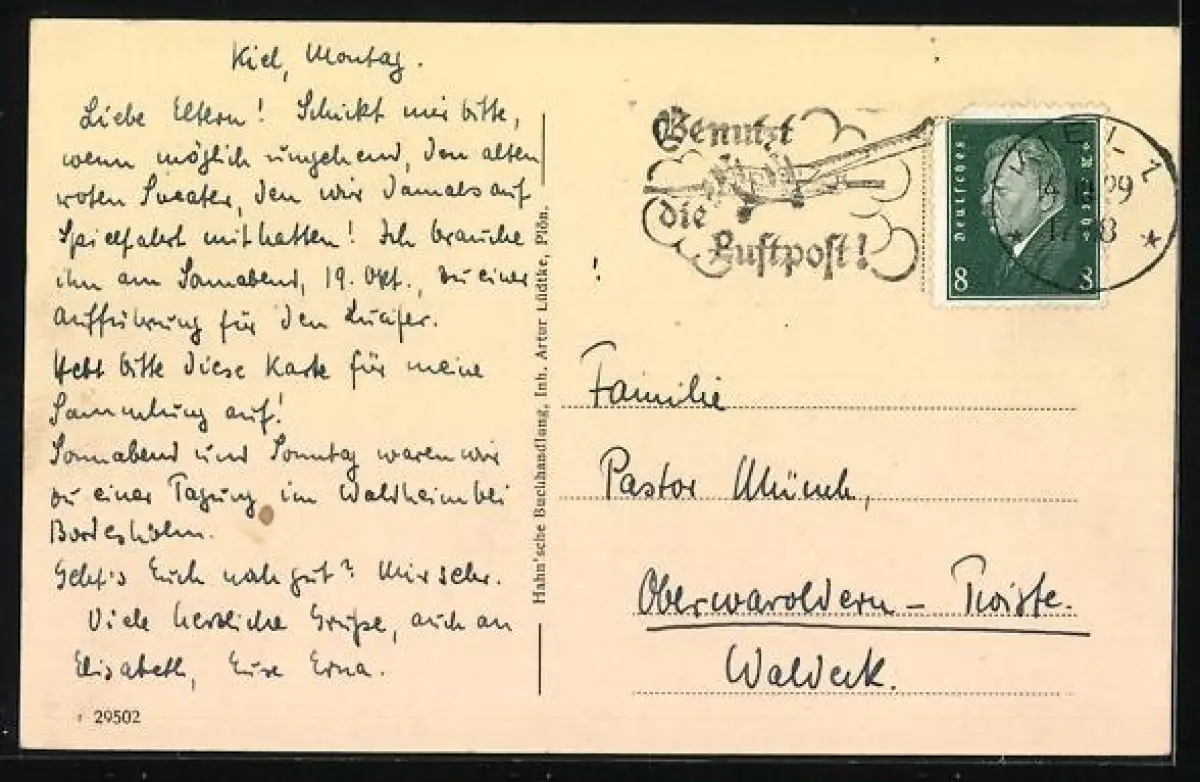 Kiel, Montag.
Liebe Eltern! Schickt mir bitte,
wenn möglich umgehend, den alten
roten Sweater, den wir damals auf
Spielfahrt mithatten! Ich brauche
ihn am Sonnabend, 19. Okt., zu einer
Aufführung für den Luzifer.
Hebt bitte diese Karte für meine
Sammlung auf!
Sonnabend und Sonntag waren wir
zu einer Tagung im Waldheim bei
Bordesholm.
Geht's Euch noch gut? Mir sehr.
Viele herzliche Grüße, auch an
Elisabeth, Eure Erna.
29502
Hahn'sche Buchhandlung, Inh. Artur Lüdtke, Plön.
Benutzt
die
Luftpost!
Deutsches
Reich
8 8
KIEL 1
14.10.29
17-18
Familie
Pastor Münch,
Oberwaroldern - Twiste.
Waldeck.